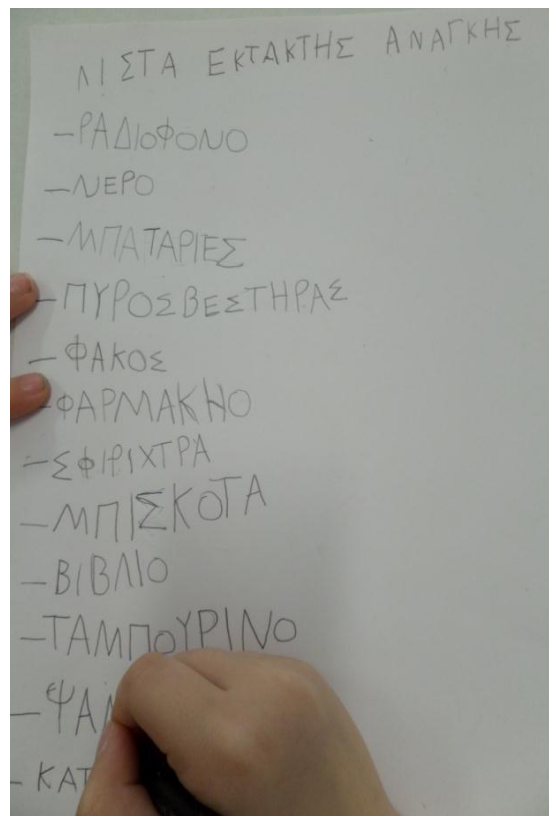 ΛΙΣΤΑ ΕΚΤΑΚΤΗΣ ΑΝΑΓΚΗΣ
-ΡΑΔΙΟΦΟΝΟ
-ΝΕΡΟ
-ΜΠΑΤΑΡΙΕΣ
-ΠΥΡΟΣΒΕΣΤΗΡΑΣ
-ΦΑΚΟΣ
-ΦΑΡΜΑΚΗΟ
-ΣΦΙΡΙΧΤΡΑ
-ΜΠΙΣΚΟΤΑ
-ΒΙΒΛΙΟ
-ΤΑΜΠΟΥΡΙΝΟ